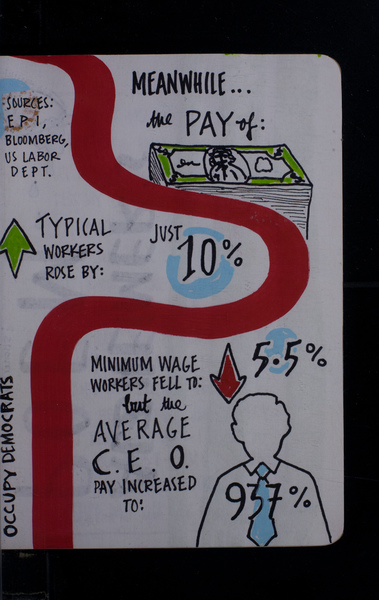 MEANWHILE...
the PAY of:
SOURCES:
EPI,
BLOOMBERG,
US LABOR
DEPT.
TYPICAL
WORKERS
ROSE BY:
JUST
10%
MINIMUM WAGE
WORKERS FELL TO:
5.5%
but the
AVERAGE
C.E.O.
PAY INCREASED
TO:
937%
OCCUPY DEMOCRATS